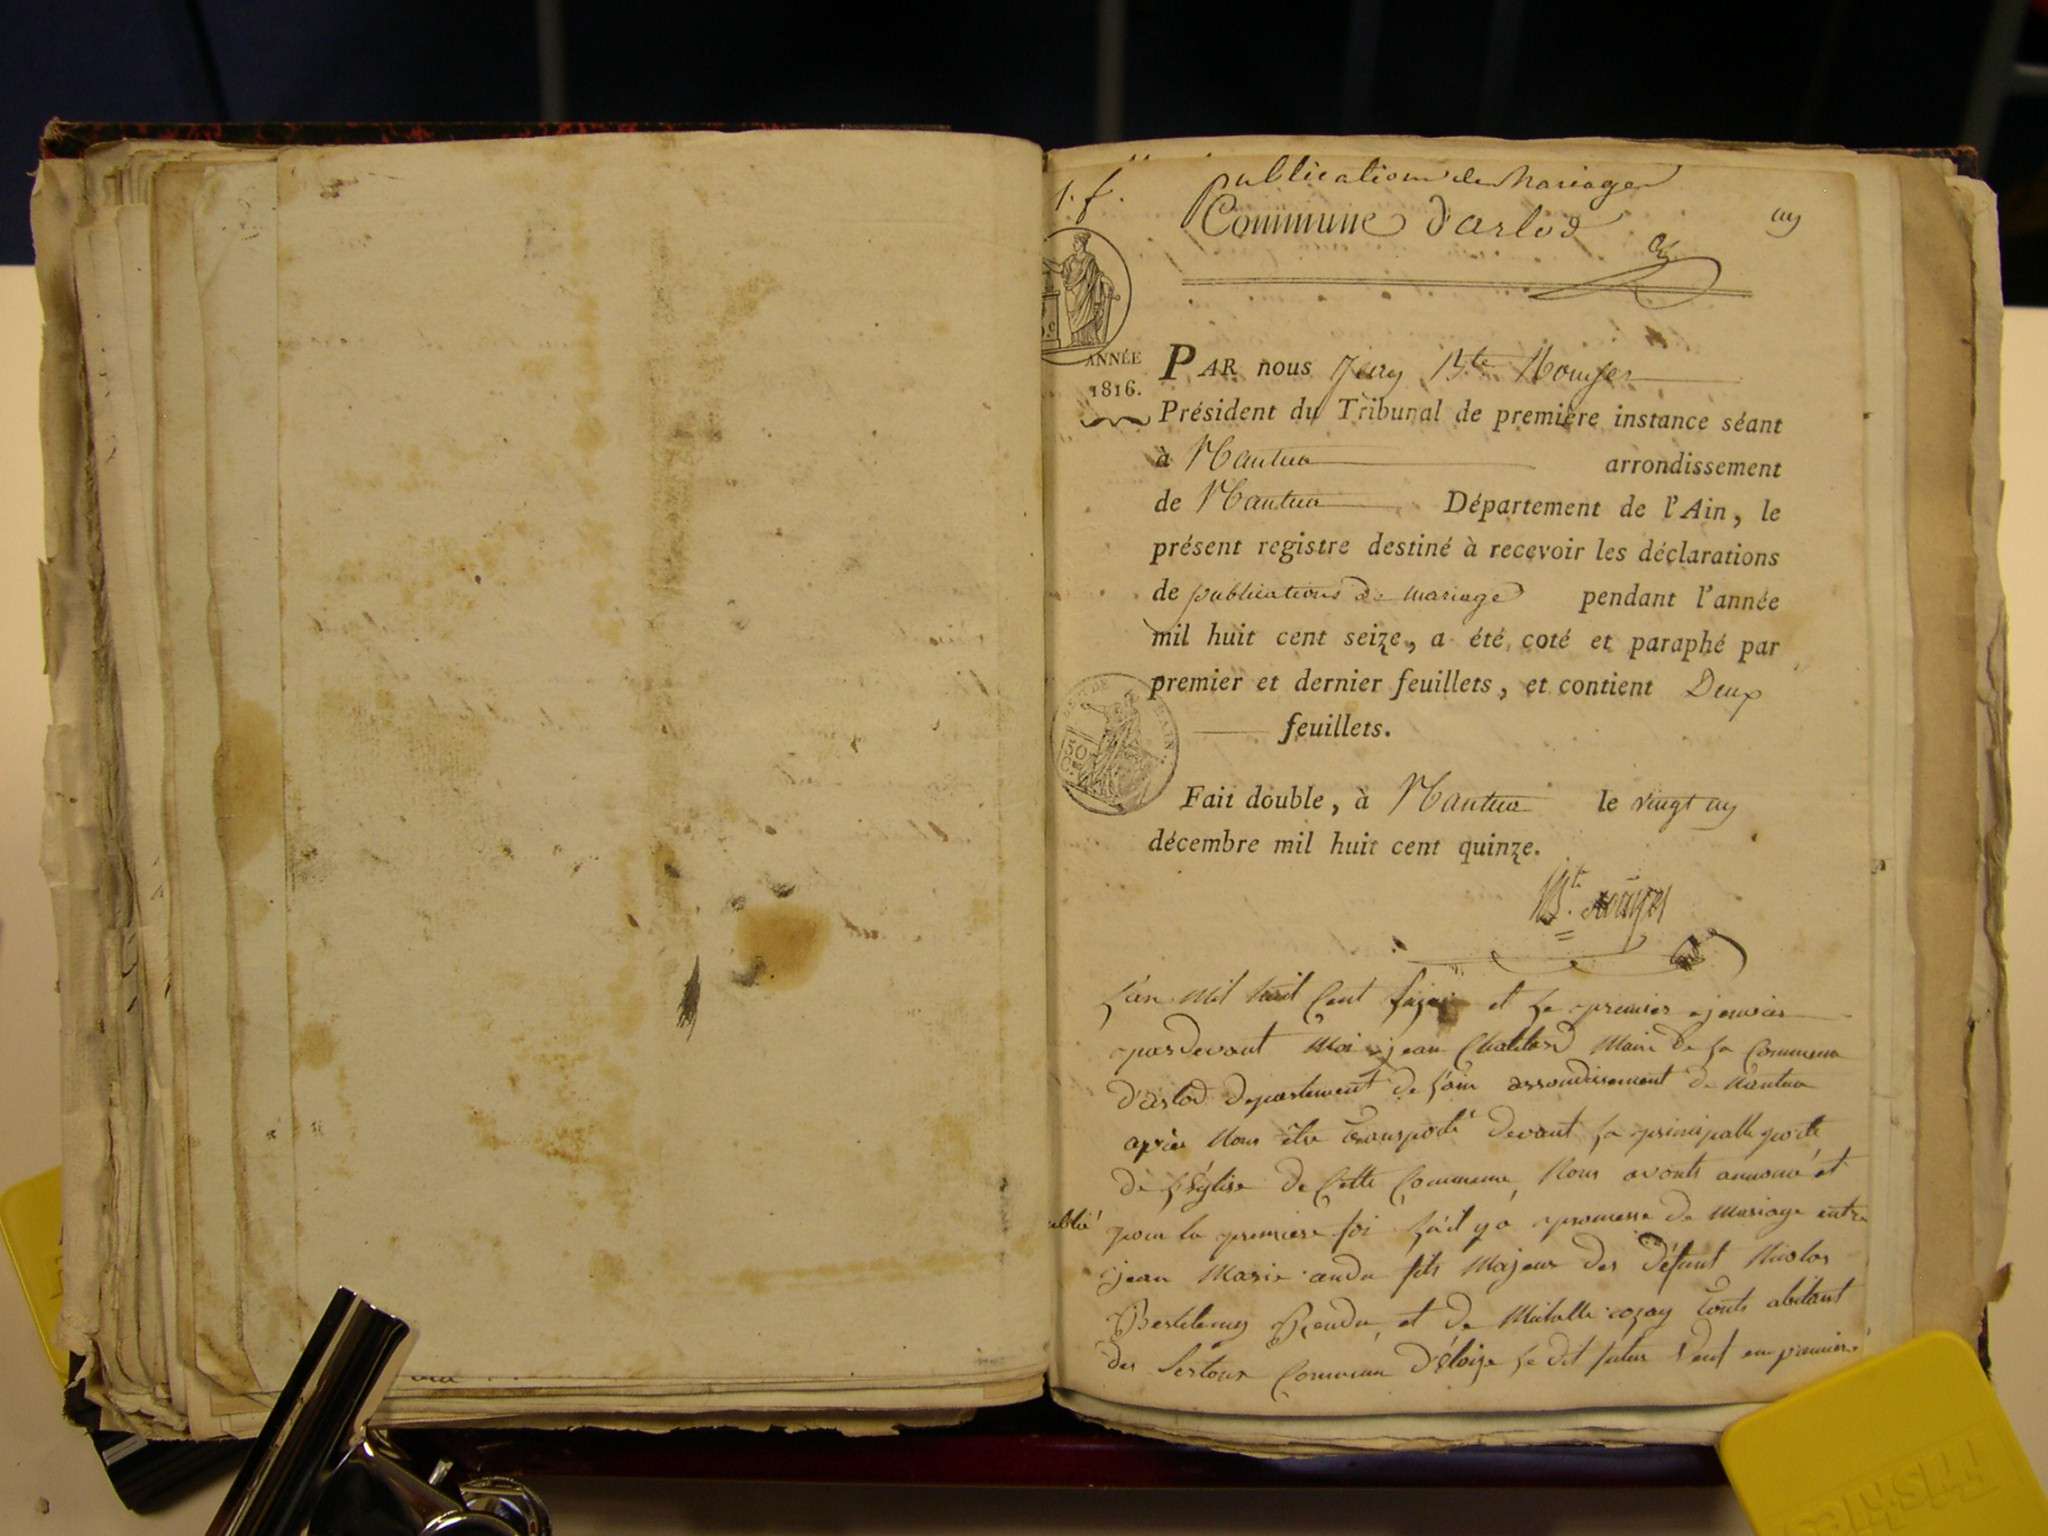 1. f.
publications de Mariage
Commune d'arlod
un
ANNÉE
1816.
PAR nous Jean Bte
Président du Tribunal de première instance séant
à Nantua arrondissement
de Nantua Département de l'Ain, le
présent registre destiné à recevoir les déclarations
de publications de mariage pendant l'année
mil huit cent seize, a été coté et paraphé par
premier et dernier feuillets, et contient Deux
feuillets.
50
Fait double, à Nantua le vingt un
décembre mil huit cent quinze.
L'an Mil huit Cent et le premier jenvier
pardevant Moi jean Maire de la Commune
d'arlod departement de l'ain arrondissement de Nantua
après Nous être transporté devant la principalle porte
de L'église de Cette Commune, Nous avonts annoncé et
ublié pour la premiere foi qu'il y a promesse de Mariage entre
jean Marie fils Majeur des défunt Nicolas
Bertelemy Rendu et de tout abitant
des Commune d'éloize le dit futur